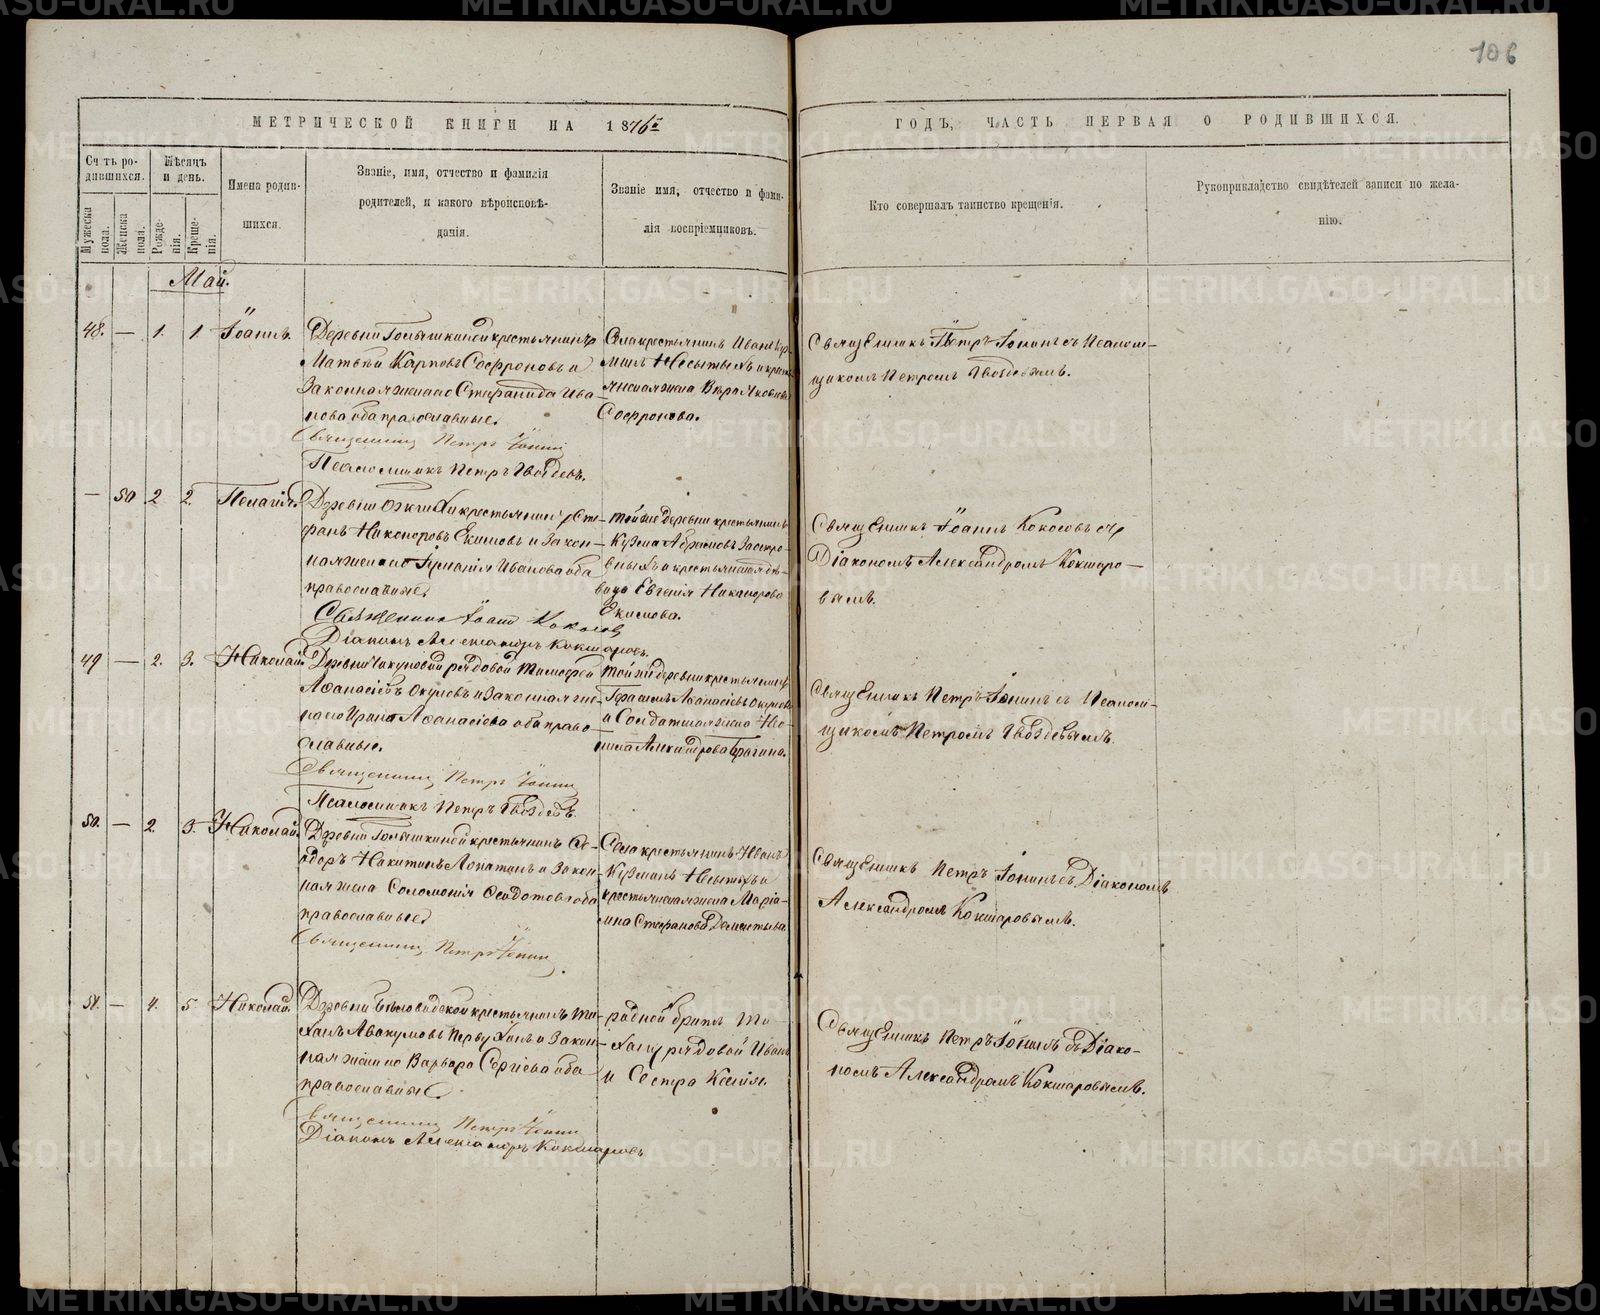 106
МЕТРИЧЕСКОЙ КНИГИ НА 1876й
ГОДЪ, ЧАСТЬ ПЕРВАЯ О РОДИВШИХСЯ.
Счетъ ро-
дившихся.
Мужеска пола.
Женска пола.
Мѣсяцъ
и день.
Рожде-
нія.
Креще-
нія.
Имена родив-
шихся.
Званіе, имя, отчество и фамилія
родителей, и какого вѣроисповѣ-
данія.
Званіе имя, отчество и фами-
лія воспріемниковъ.
Кто совершалъ таинство крещенія.
Рукоприкладство свидѣтелей записи по жела-
нію.
Май.
48. — 1. 1. Іоаннъ.
Деревни крестьянинъ
Матвей Карповъ Софроновъ и
Законная жена его Стефанида Ива-
нова оба православные.
Священникъ Петръ Іонинъ
Псаломщикъ Петръ Гвоздевъ.
Села крестьянинъ Иванъ
Несытыхъ и кресть-
янская жена Вѣра Яковлева
Софронова.
Священникъ Петръ Іонинъ съ Псалом-
щикомъ Петромъ Гвоздевымъ.
— 50 2 2. Пелагія.
Деревни крестьянинъ Сте-
фанъ Никоноровъ Екимовъ и Закон-
ная жена его Иванова оба
православные.
Священникъ Іоаннъ Кокосовъ
Діаконъ Александръ Кокшаровъ.
той же деревни крестьянинъ
Кузма Абрамовъ
и крестьянская дѣ-
вица Евгенія Никанорова
Екимова.
Священникъ Іоаннъ Кокосовъ съ
Діакономъ Александромъ Кокшаро-
вымъ.
49 — 2. 3. Николай.
Деревни рядовой Тимофей
Афанасіевъ Окуловъ и Законная же-
на его Афанасіева оба право-
славные.
Священникъ Петръ Іонинъ
Псаломщикъ Петръ Гвоздевъ.
той же деревни крестьянинъ
Герасимъ Афанасіевъ Окуловъ
и Солдатская жена
Александрова Брагина.
Священникъ Петръ Іонинъ съ Псалом-
щикомъ Петромъ Гвоздевымъ.
50. — 2. 3. Николай.
Деревни крестьянинъ Ѳе-
доръ Никитинъ Лопатинъ и Закон-
ная жена Соломонія Ѳедотова оба
православные
Священникъ Петръ Іонинъ
Села крестьянинъ Иванъ
Кузминъ Несытыхъ и
крестьянская жена Маріа-
мна Стефанова Дементьева
Священникъ Петръ Іонинъ съ Діакономъ
Александромъ Кокшаровымъ.
51. — 4. 5. Николай.
Деревни Бѣловодской крестьянинъ Ти-
ханъ Авакумовъ Первухинъ и Закон-
ная жена его Варвара Сергіева оба
православные.
Священникъ Петръ Іонинъ
Діаконъ Александръ Кокшаровъ
родной братъ Ти-
хану рядовой Иванъ
и Сестра Ксенія.
Священникъ Петръ Іонинъ съ Діако-
номъ Александромъ Кокшаровымъ.
METRIKI.GASO-URAL.RU